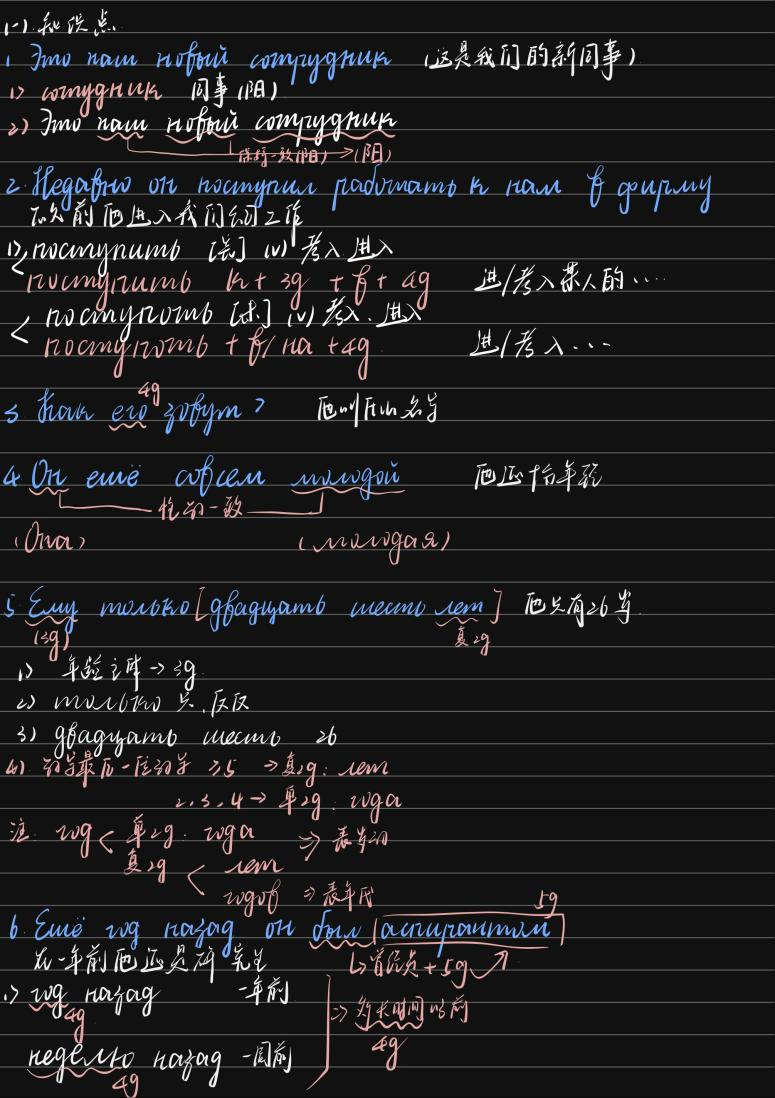 (一). 知识点
1. Это наш новый сотрудник (这是我们的新同事)
1) сотудник 同事(阳)
2) Это наш новый сотрудник
保持一致(阳) → (阳)
2. Недавно он поступил работать к нам в фирму
不久前他进入我们公司工作
1) поступить [完] (v) 考入.进入
поступить к + 3g + в + 4g 进/考入某人的....
поступоть [未] (v) 考入.进入
поступоть + в/на + 4g 进/考入...
4g
3. Как его зовут? 他叫什么名字
4. Он ещё совсем молодой 他还十分年轻
性数一致
(Она) (молодая)
5. Ему только [двадцать шесть лет] 他只有26岁
(3g) 复2g
1) 年龄主体 → 3g
2) только 只.仅仅
3) двадцать шесть 26
4). 数字最后一位数字 ≥5 → 复2g: лет
2.3.4 → 单2g: года
注: год < 单2g. года ⇒ 表岁数
复2g < лет
годов ⇒ 表年代
5g
6. Ещё год назад он был [аспирантом]
在一年前他还是研究生 ↳ 首次是 + 5g
1) год назад 一年前
4g ⇒ 多长时间以前
4g
неделю назад 一周前
4g